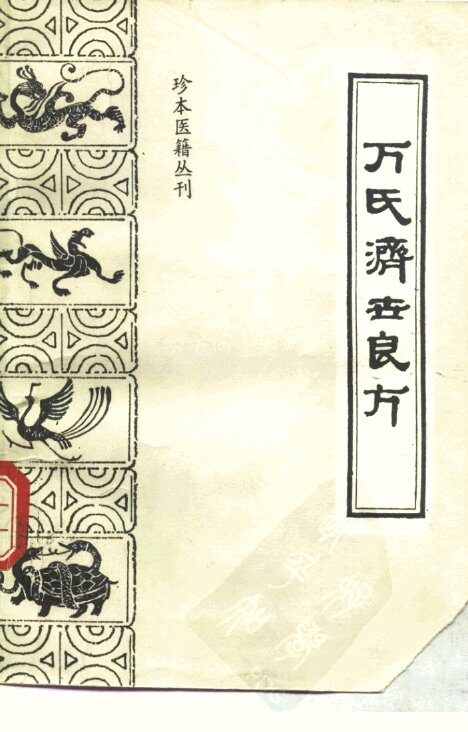 万氏濟世良方
珍本医籍丛刊